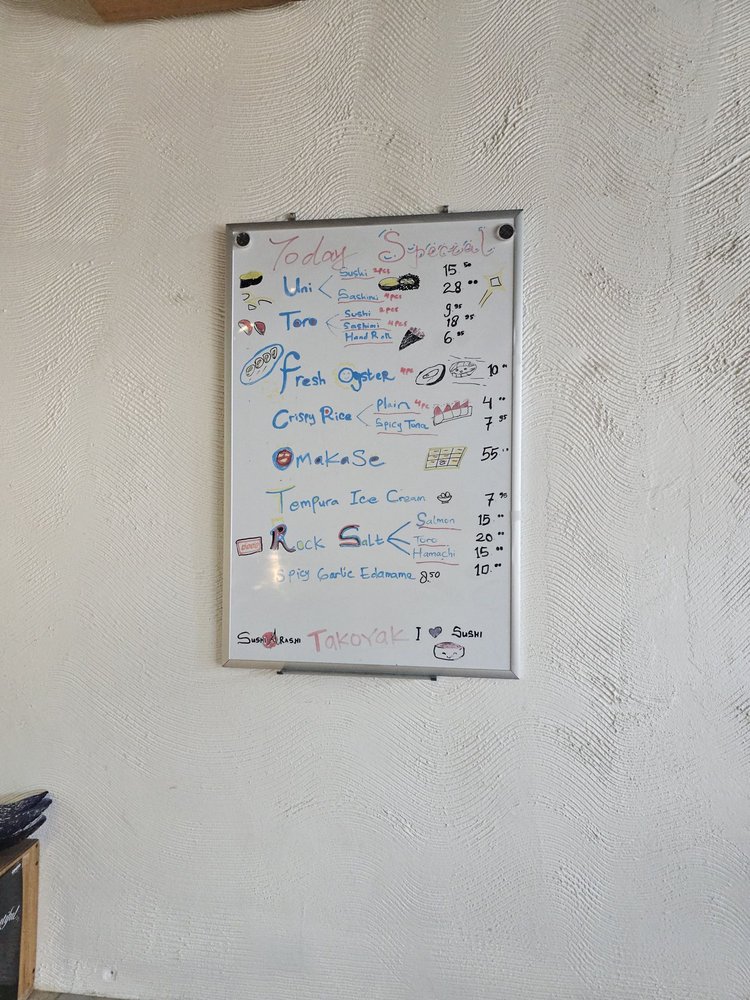 Today Special
Uni Sushi 2pcs 15 50
Sashimi 4pcs 28 00
Toro Sushi 2pcs 9 95
Sashimi 4pcs 18 95
Hand Roll 6 95
Fresh Oyster 4pc 10 00
Crispy Rice Plain 4pc 4 00
Spicy Tuna 7 95
Omakase 55 00
Tempura Ice Cream 7 95
Rock Salt Salmon 15 00
Toro 20 00
Hamachi 15 00
Spicy Garlic Edamame 8.50 10.00
Sushi Rashi Takoyak I ♥ Sushi